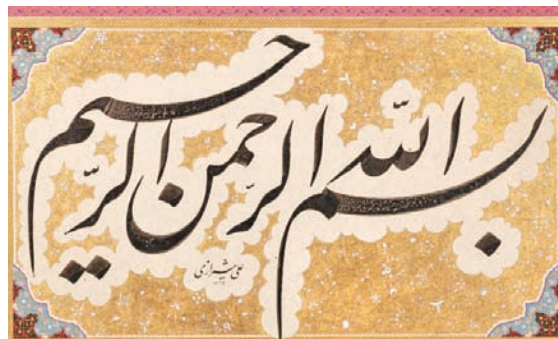 بسم الله الرحمن الرحیم
علی شیرازی